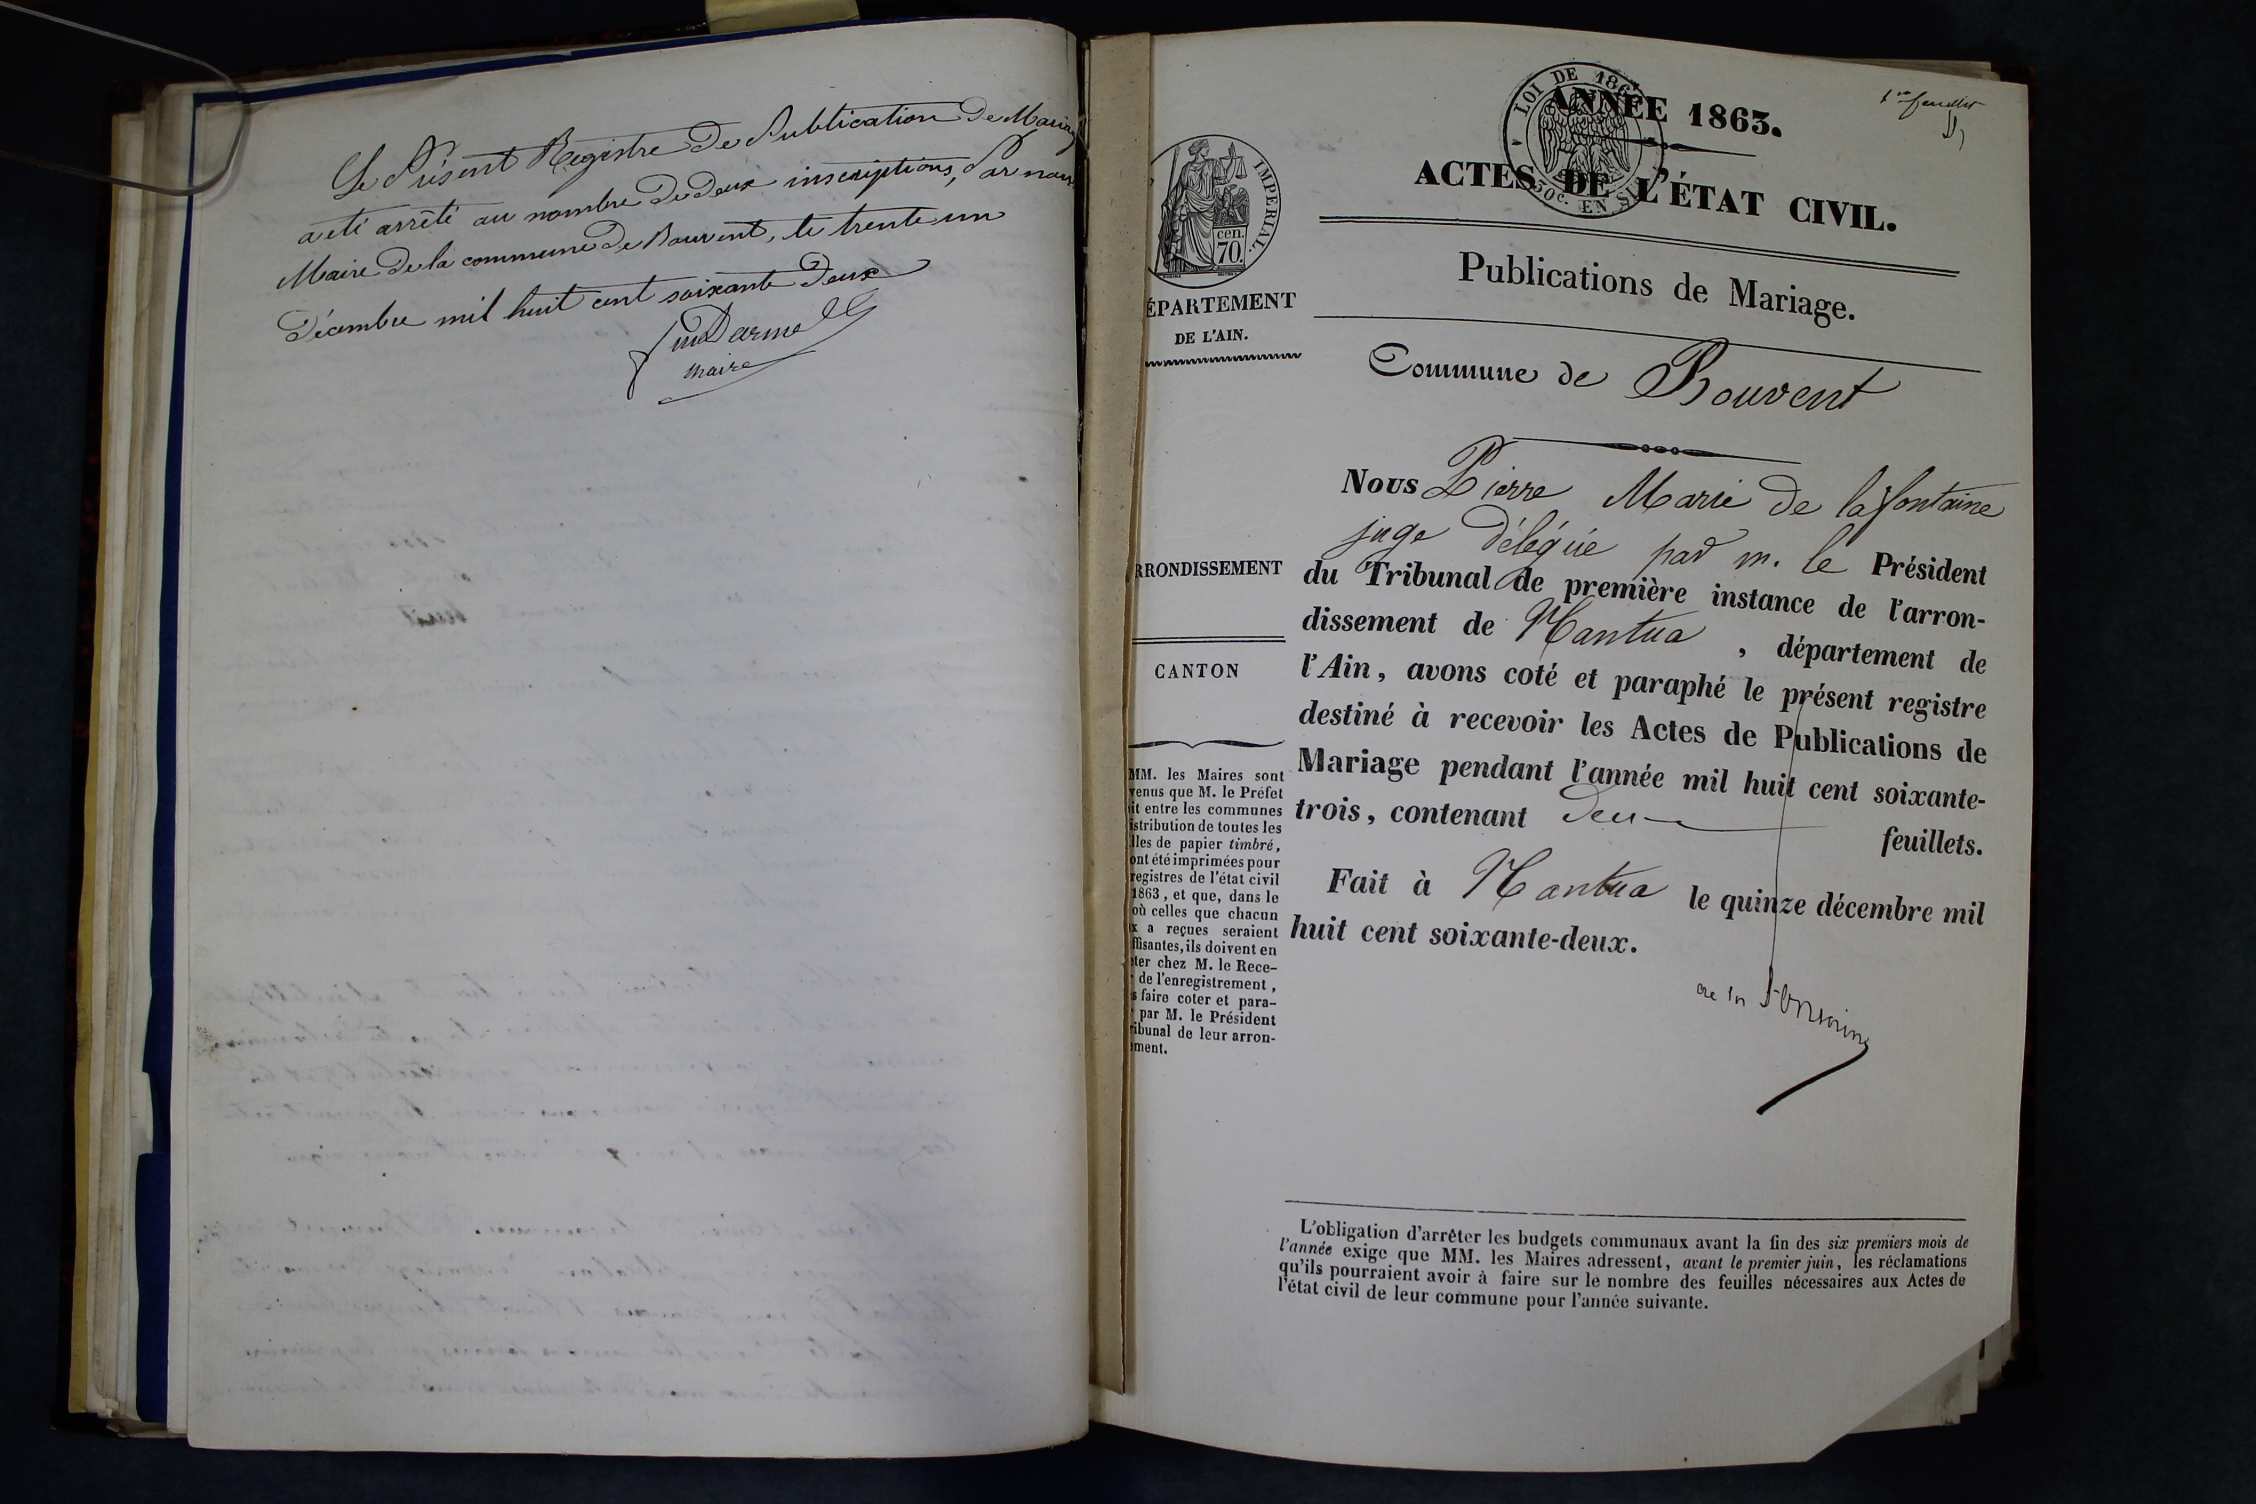 Le Présent Registre de Publication de Mariage
a été arrêté au nombre de deux inscriptions, Par nous
Maire de la commune de Bouvent, le trente un
Décembre mil huit cent soixante deux
maire
1er feuillet
LOI DE 1862
50c. EN SUS
ANNÉE 1863.
ACTES DE L'ÉTAT CIVIL.
Publications de Mariage.
Commune de Bouvent
IMPERIAL.
cen.
70.
ÉPARTEMENT
DE L'AIN.
RRONDISSEMENT
CANTON
MM. les Maires sont
venus que M. le Préfet
it entre les communes
istribution de toutes les
lles de papier timbré,
ont été imprimées pour
registres de l'état civil
1863, et que, dans le
où celles que chacun
x a reçues seraient
ffisantes, ils doivent en
ter chez M. le Rece-
de l'enregistrement,
s faire coter et para-
par M. le Président
ribunal de leur arron-
ment.
Nous Pierre Marie de lafontaine
juge délégué par m. le Président
du Tribunal de première instance de l'arron-
dissement de Nantua, département de
l'Ain, avons coté et paraphé le présent registre
destiné à recevoir les Actes de Publications de
Mariage pendant l'année mil huit cent soixante-
trois, contenant deux feuillets.
Fait à Nantua le quinze décembre mil
huit cent soixante-deux.
de la fontaine
L'obligation d'arrêter les budgets communaux avant la fin des six premiers mois de
l'année exige que MM. les Maires adressent, avant le premier juin, les réclamations
qu'ils pourraient avoir à faire sur le nombre des feuilles nécessaires aux Actes de
l'état civil de leur commune pour l'année suivante.